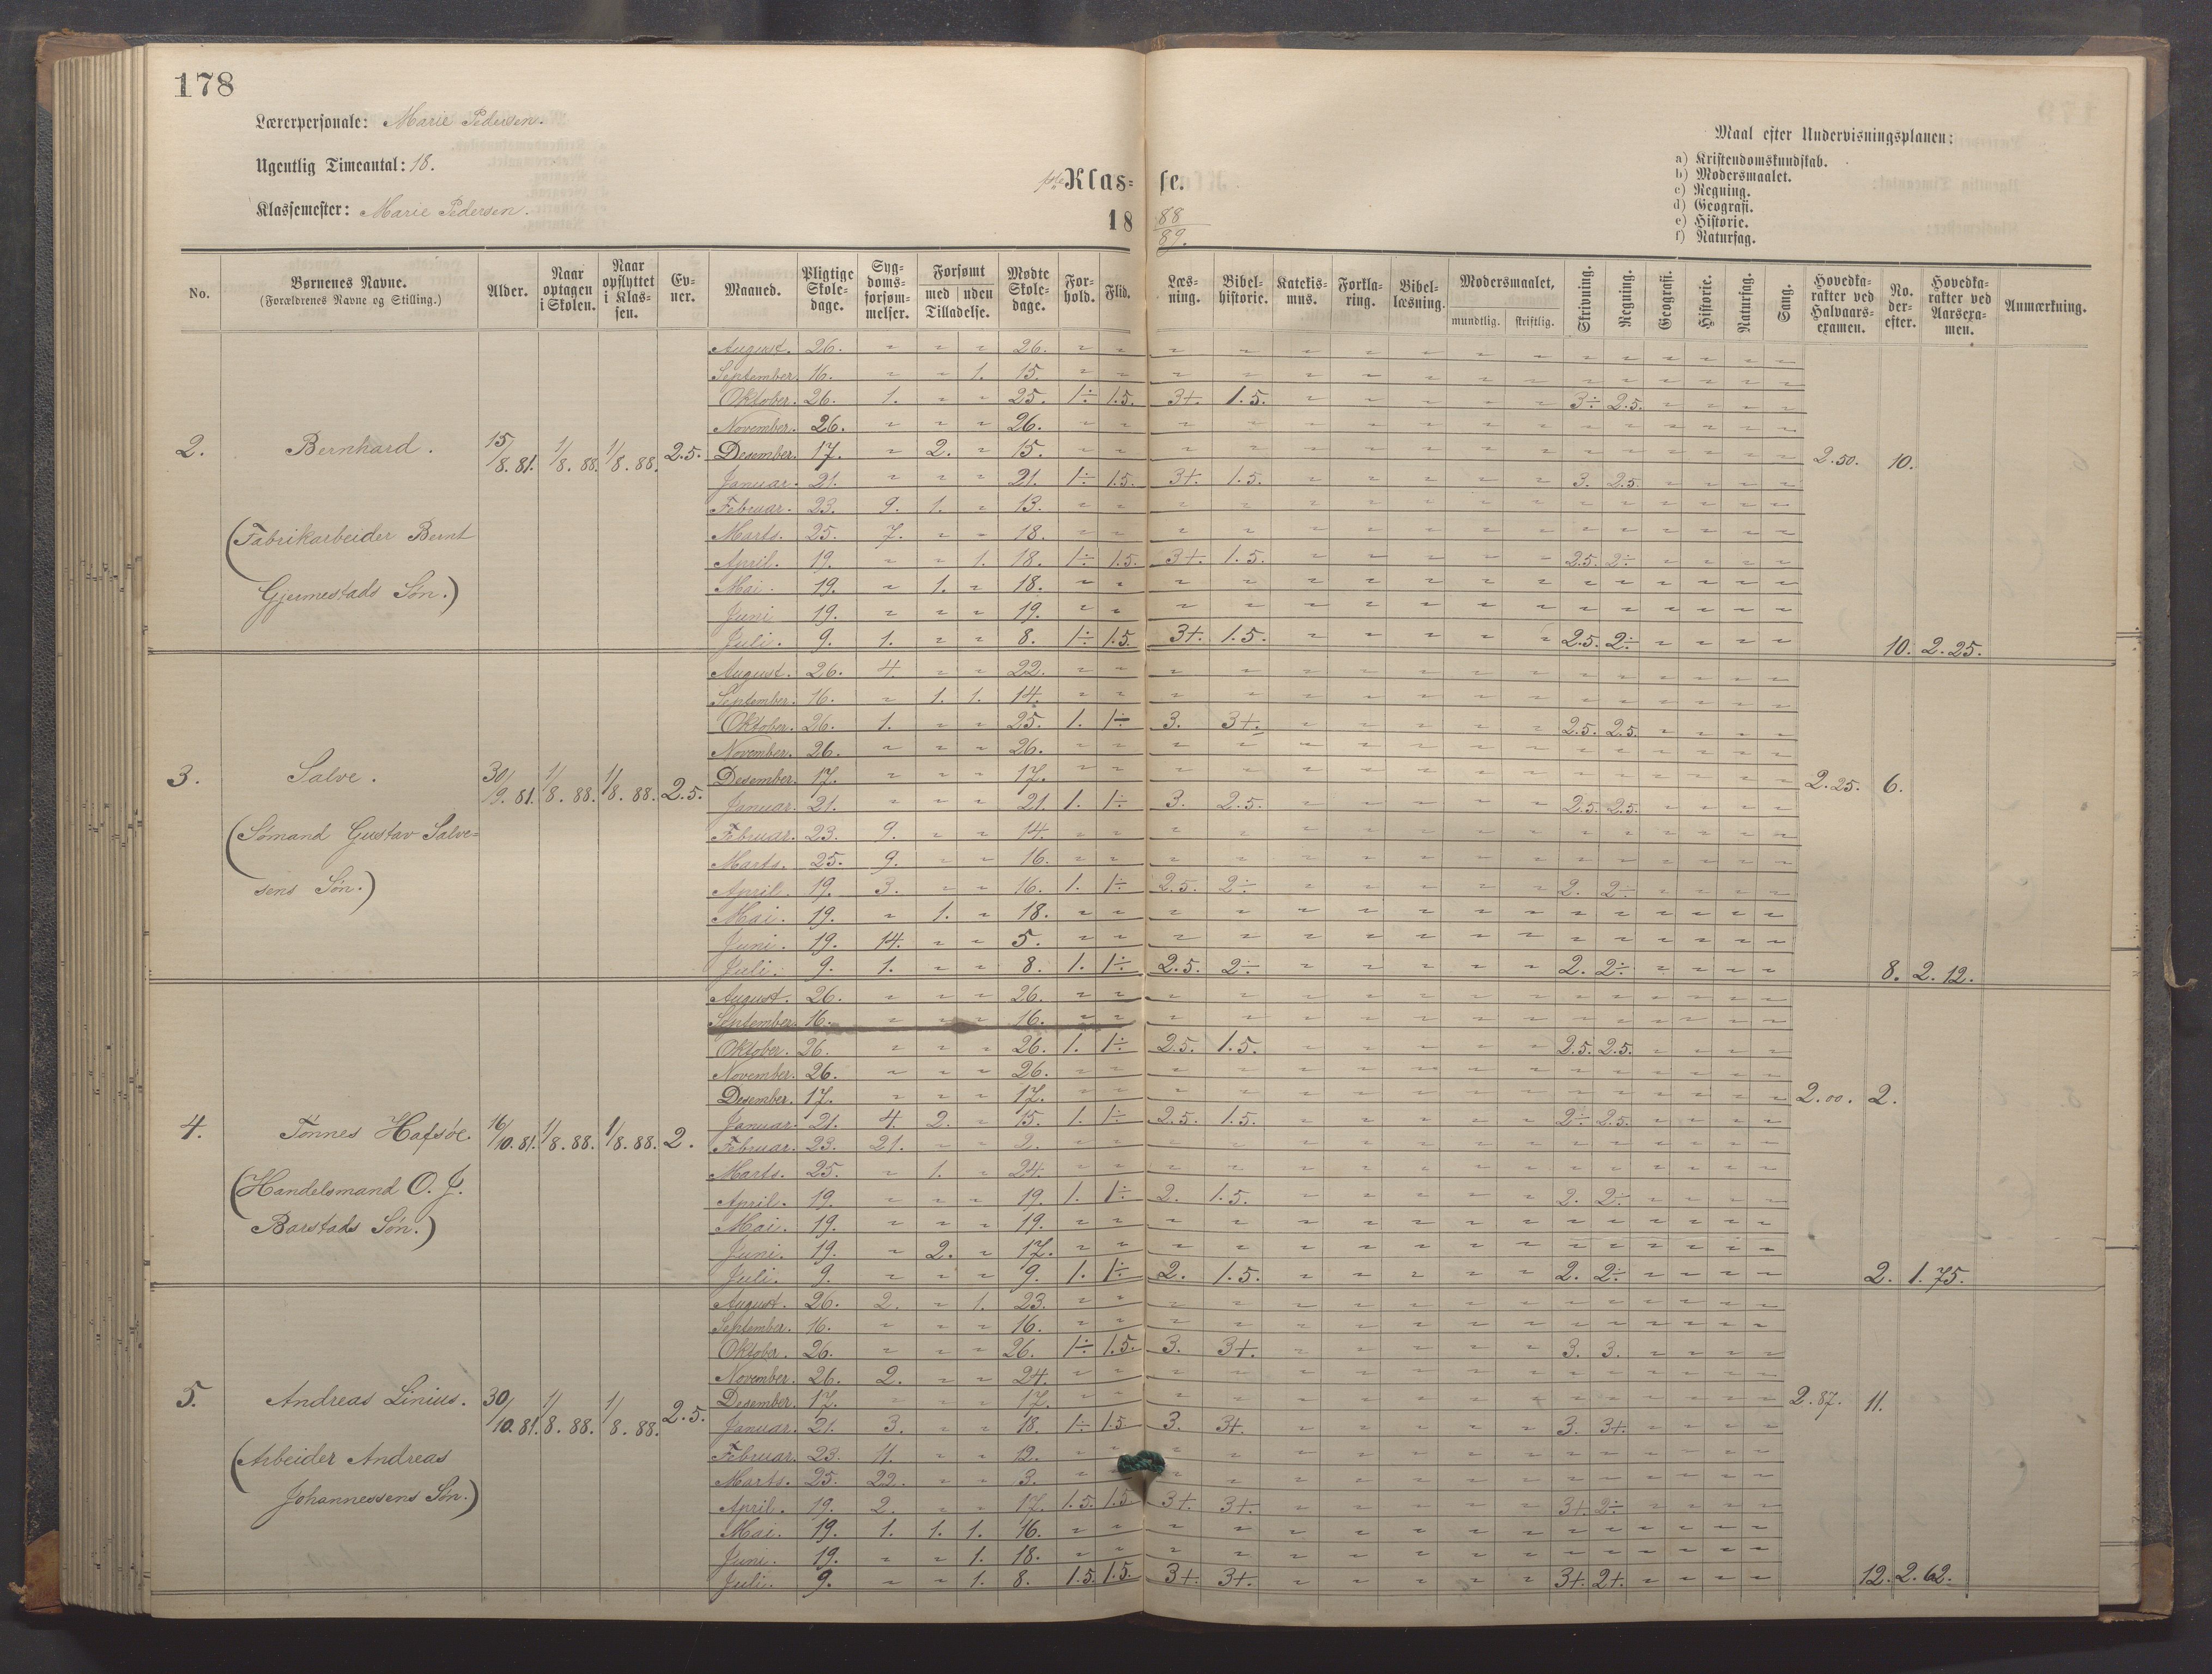 178
Lærerpersonale: Marie Pedersen.
Ugentlig Timeantal: 18.
Klassemester: Marie Pedersen.
1ste Klas- se.
18 88/89.
Maal efter Undervisningsplanen:
a) Kristendomskundskab.
b) Modersmaalet.
c) Regning.
d) Geografi.
e) Historie.
f) Naturfag.
No. | Børnenes Navne. (Forældrenes Navne og Stilling.) | Alder. | Naar optagen i Skolen. | Naar opflyttet i Klassen. | Evner. | Maaned. | Pligtige Skoledage. | Sygdomsforsømmelser. | Forsømt med uden Tilladelse. | Mødte Skoledage. | Forhold. | Flid. | Læsning. | Bibelhistorie. | Katekismus. | Forklaring. | Bibellæsning. | Modersmaalet, mundtlig. skriftlig. | Skrivning. | Regning. | Geografi. | Historie. | Naturfag. | Sang. | Hovedkarakter ved Halvaarsexamen. | No. derefter. | Hovedkarakter ved Aarsexamen. | Anmærkning.
2. Bernhard. 15/8. 81. 1/8. 88. 1/8. 88. 2.5.
(Fabrikarbeider Bernt
Gjermestads Søn.)
August. 26. " " " 26. " "
September. 16. " " 1. 15. " "
Oktober. 26. 1. " " 25. 1÷ 1.5. 3+. 1.5. " " " " " 3÷ 2.5. " " " "
November. 26. " " " 26. " "
Desember. 17. " 2. " 15. " "
2.50. 10.
Januar. 21. " " " 21. 1÷ 1.5. 3+. 1.5. " " " " " 3. 2.5. " " " "
Februar. 23. 9. 1. " 13. " "
Marts. 25. 7. " " 18. " "
April. 19. " " 1. 18. 1÷ 1.5. 3+. 1.5. " " " " " 2.5. 2÷ " " " "
Mai. 19. " 1. " 18. " "
Juni 19. " " " 19. " "
Juli. 9. 1. " " 8. 1÷ 1.5. 3+. 1.5. " " " " " 2.5. 2÷ " " " " 10. 2.25.
3. Salve. 30/9. 81. 1/8. 88. 1/8. 88. 2.5.
(Sømand Gustav Salve=
sens Søn.)
August. 26. 4. " " 22. " "
September. 16. " 1. 1. 14. " "
Oktober. 26. 1. " " 25. 1. 1÷ 3. 3+. " " " " " 2.5. 2.5. " " " "
November. 26. " " " 26. " "
Desember. 17. " " " 17. " "
2.25. 6.
Januar. 21. " " " 21. 1. 1÷ 3. 2.5. " " " " " 2.5. 2.5. " " " "
Februar. 23. 9. " " 14. " "
Marts. 25. 9. " " 16. " "
April. 19. 3. " " 16. 1. 1÷ 2.5. 2÷ " " " " " 2. 2÷ " " " "
Mai. 19. " 1. " 18. " "
Juni. 19. 14. " " 5. " "
Juli. 9. 1. " " 8. 1. 1÷ 2.5. 2÷ " " " " " 2. 2÷ " " " " 8. 2.12.
4. Tønnes Hafsøe. 16/10. 81. 1/8. 88. 1/8. 88. 2.
(Handelsmand O. J.
Barstads Søn.)
August. 26. " " " 26. " "
September. 16. " " " 16. " "
Oktober. 26. " " " 26. 1. 1÷ 2.5. 1.5. " " " " " 2.5. 2.5. " " " "
November. 26. " " " 26. " "
Desember. 17. " " " 17. " "
2.00. 2.
Januar. 21. 4. 2. " 15. 1. 1÷ 2.5. 1.5. " " " " " 2÷ 2.5. " " " "
Februar. 23. 21. " " 2. " "
Marts. 25. " 1. " 24. " "
April. 19. " " " 19. 1. 1÷ 2. 1.5. " " " " " 2. 2÷ " " " "
Mai. 19. " " " 19. " "
Juni. 19. " 2. " 17. " "
Juli. 9. " " " 9. 1. 1÷ 2. 1.5. " " " " " 2. 2÷ " " " " 2. 1.75.
5. Andreas Linius. 30/10. 81. 1/8. 88. 1/8. 88. 2.5.
(Arbeider Andreas
Johannessens Søn.)
August. 26. 2. " 1. 23. " "
September. 16. " " " 16. " "
Oktober. 26. " " " 26. 1÷ 1.5. 3. 3+. " " " " " 3. 3. " " " "
November. 26. 2. " " 24. " "
Desember. 17. " " " 17. " "
2.87. 11.
Januar. 21. 3. " " 18. 1÷ 1.5 3. 3+. " " " " " 3. 3+. " " " "
Februar. 23. 11. " " 12. " "
Marts. 25. 22. " " 3. " "
April. 19. 2. " " 17. 1.5. 1.5. 3+. 3+. " " " " " 3+. 2÷ " " " "
Mai. 19. 1. 1. 1. 16. " "
Juni. 19. " " 1. 18. " "
Juli. 9. " " 1. 8. 1.5. 1.5. 3+. 3+. " " " " " 3+. 2+. " " " " 12. 2.62.